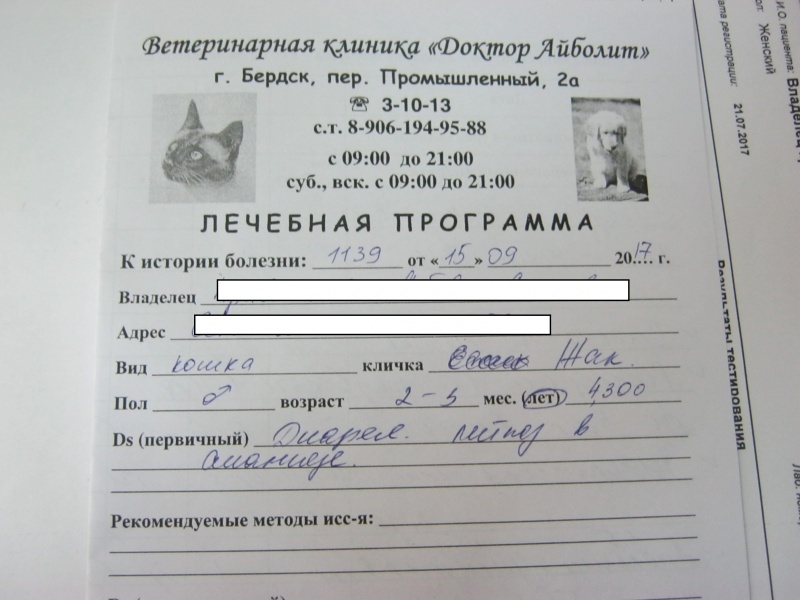 Ветеринарная клиника «Доктор Айболит»
г. Бердск, пер. Промышленный, 2а
☎ 3-10-13
с.т. 8-906-194-95-88
с 09:00 до 21:00
суб., вск. с 09:00 до 21:00
ЛЕЧЕБНАЯ ПРОГРАММА
К истории болезни: 1139 от «15» 09 2017 г.
Владелец
Адрес
Вид кошка кличка Жак.
Пол ♂ возраст 2-3 мес. (лет) 4,300
Ds (первичный) Диарея. в
Рекомендуемые методы исс-я:
И.О. пациента:
Владелец
пол: Женский
ата регистрации: 21.07.2017
Результаты тестирования